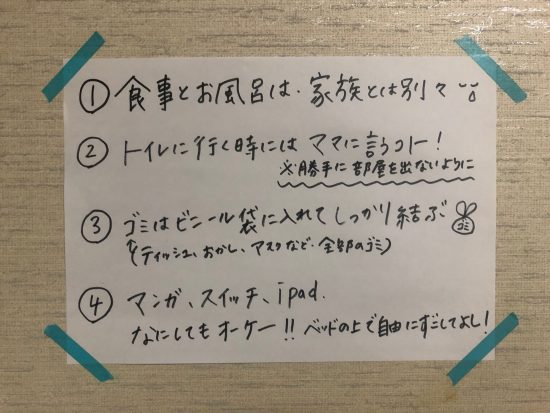 ① 食事とお風呂は、家族とは別々
② トイレに行く時には ママに言うコト!
※勝手に部屋を出ないように
③ ゴミはビニール袋に入れてしっかり結ぶ ゴミ
(ティッシュ、おかし、マスクなど、全部のゴミ)
④ マンガ、スイッチ、ipad.
なにしてもオーケー!! ベッドの上で自由にすごしてよし!